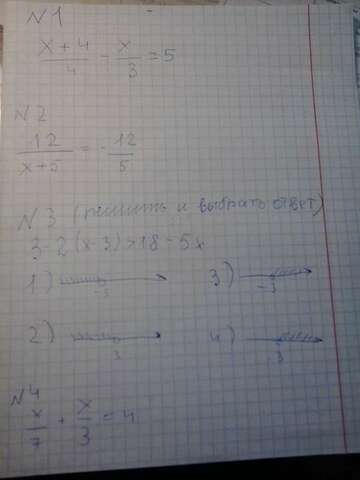 N1
x+4/4 - x/3 = 5
N2
12/x+5 = -12/5
N3 (решить и выбрать ответ)
3-2(x-3)>18-5x
1) -3 3) -3
2) 3 4) 3
N4
x/7 + x/3 = 4